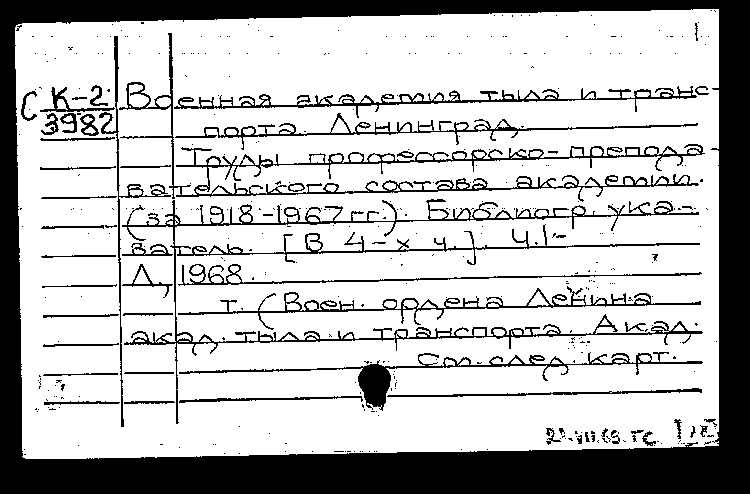 С К-2 Военная академия тыла и транс-
3982 порта. Ленинград.
Труды профессорско-препода-
вательского состава академии.
(за 1918-1967 гг.). Библиогр. ука-
затель. [В 4-х ч.]. Ч.1-
Л., 1968.
т. (Воен. ордена Ленина
акад. тыла и транспорта. Акад.
См. след. карт.
VII.69. ГС